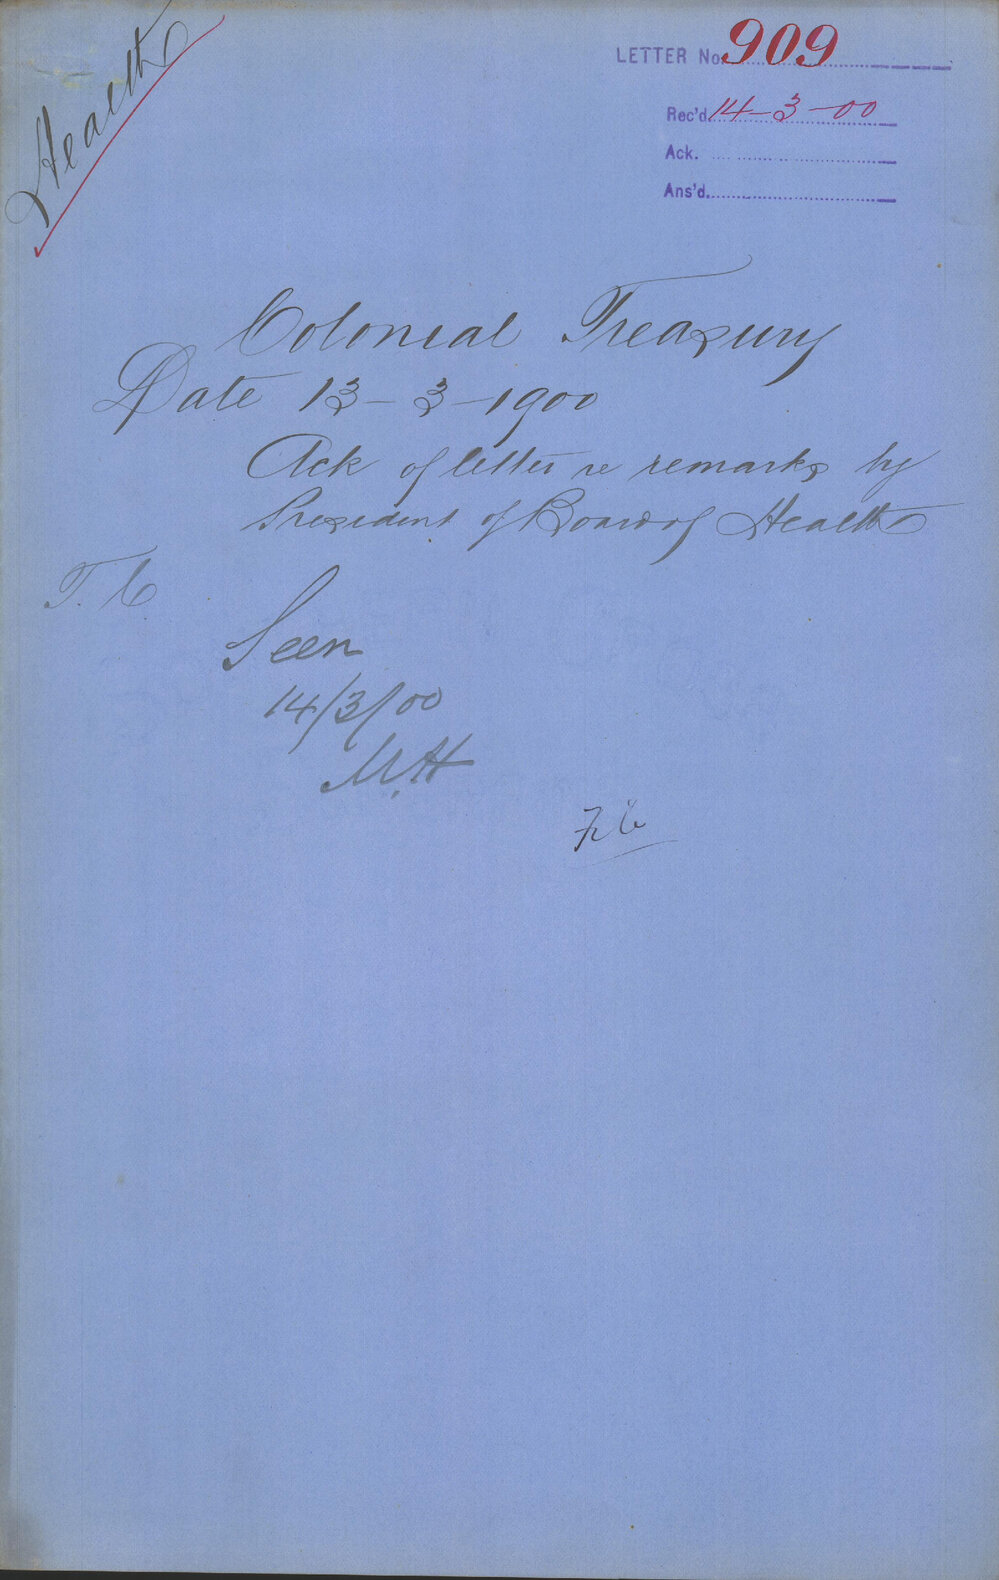 Health
LETTER No. 909
Rec'd. 14-3-00
Ack.
Ans'd.
Colonial Treasury
Date 13-3-1900
Ack of letter re remarks by
President of Board of Health
T. C
Seen
14/3/00
M.H